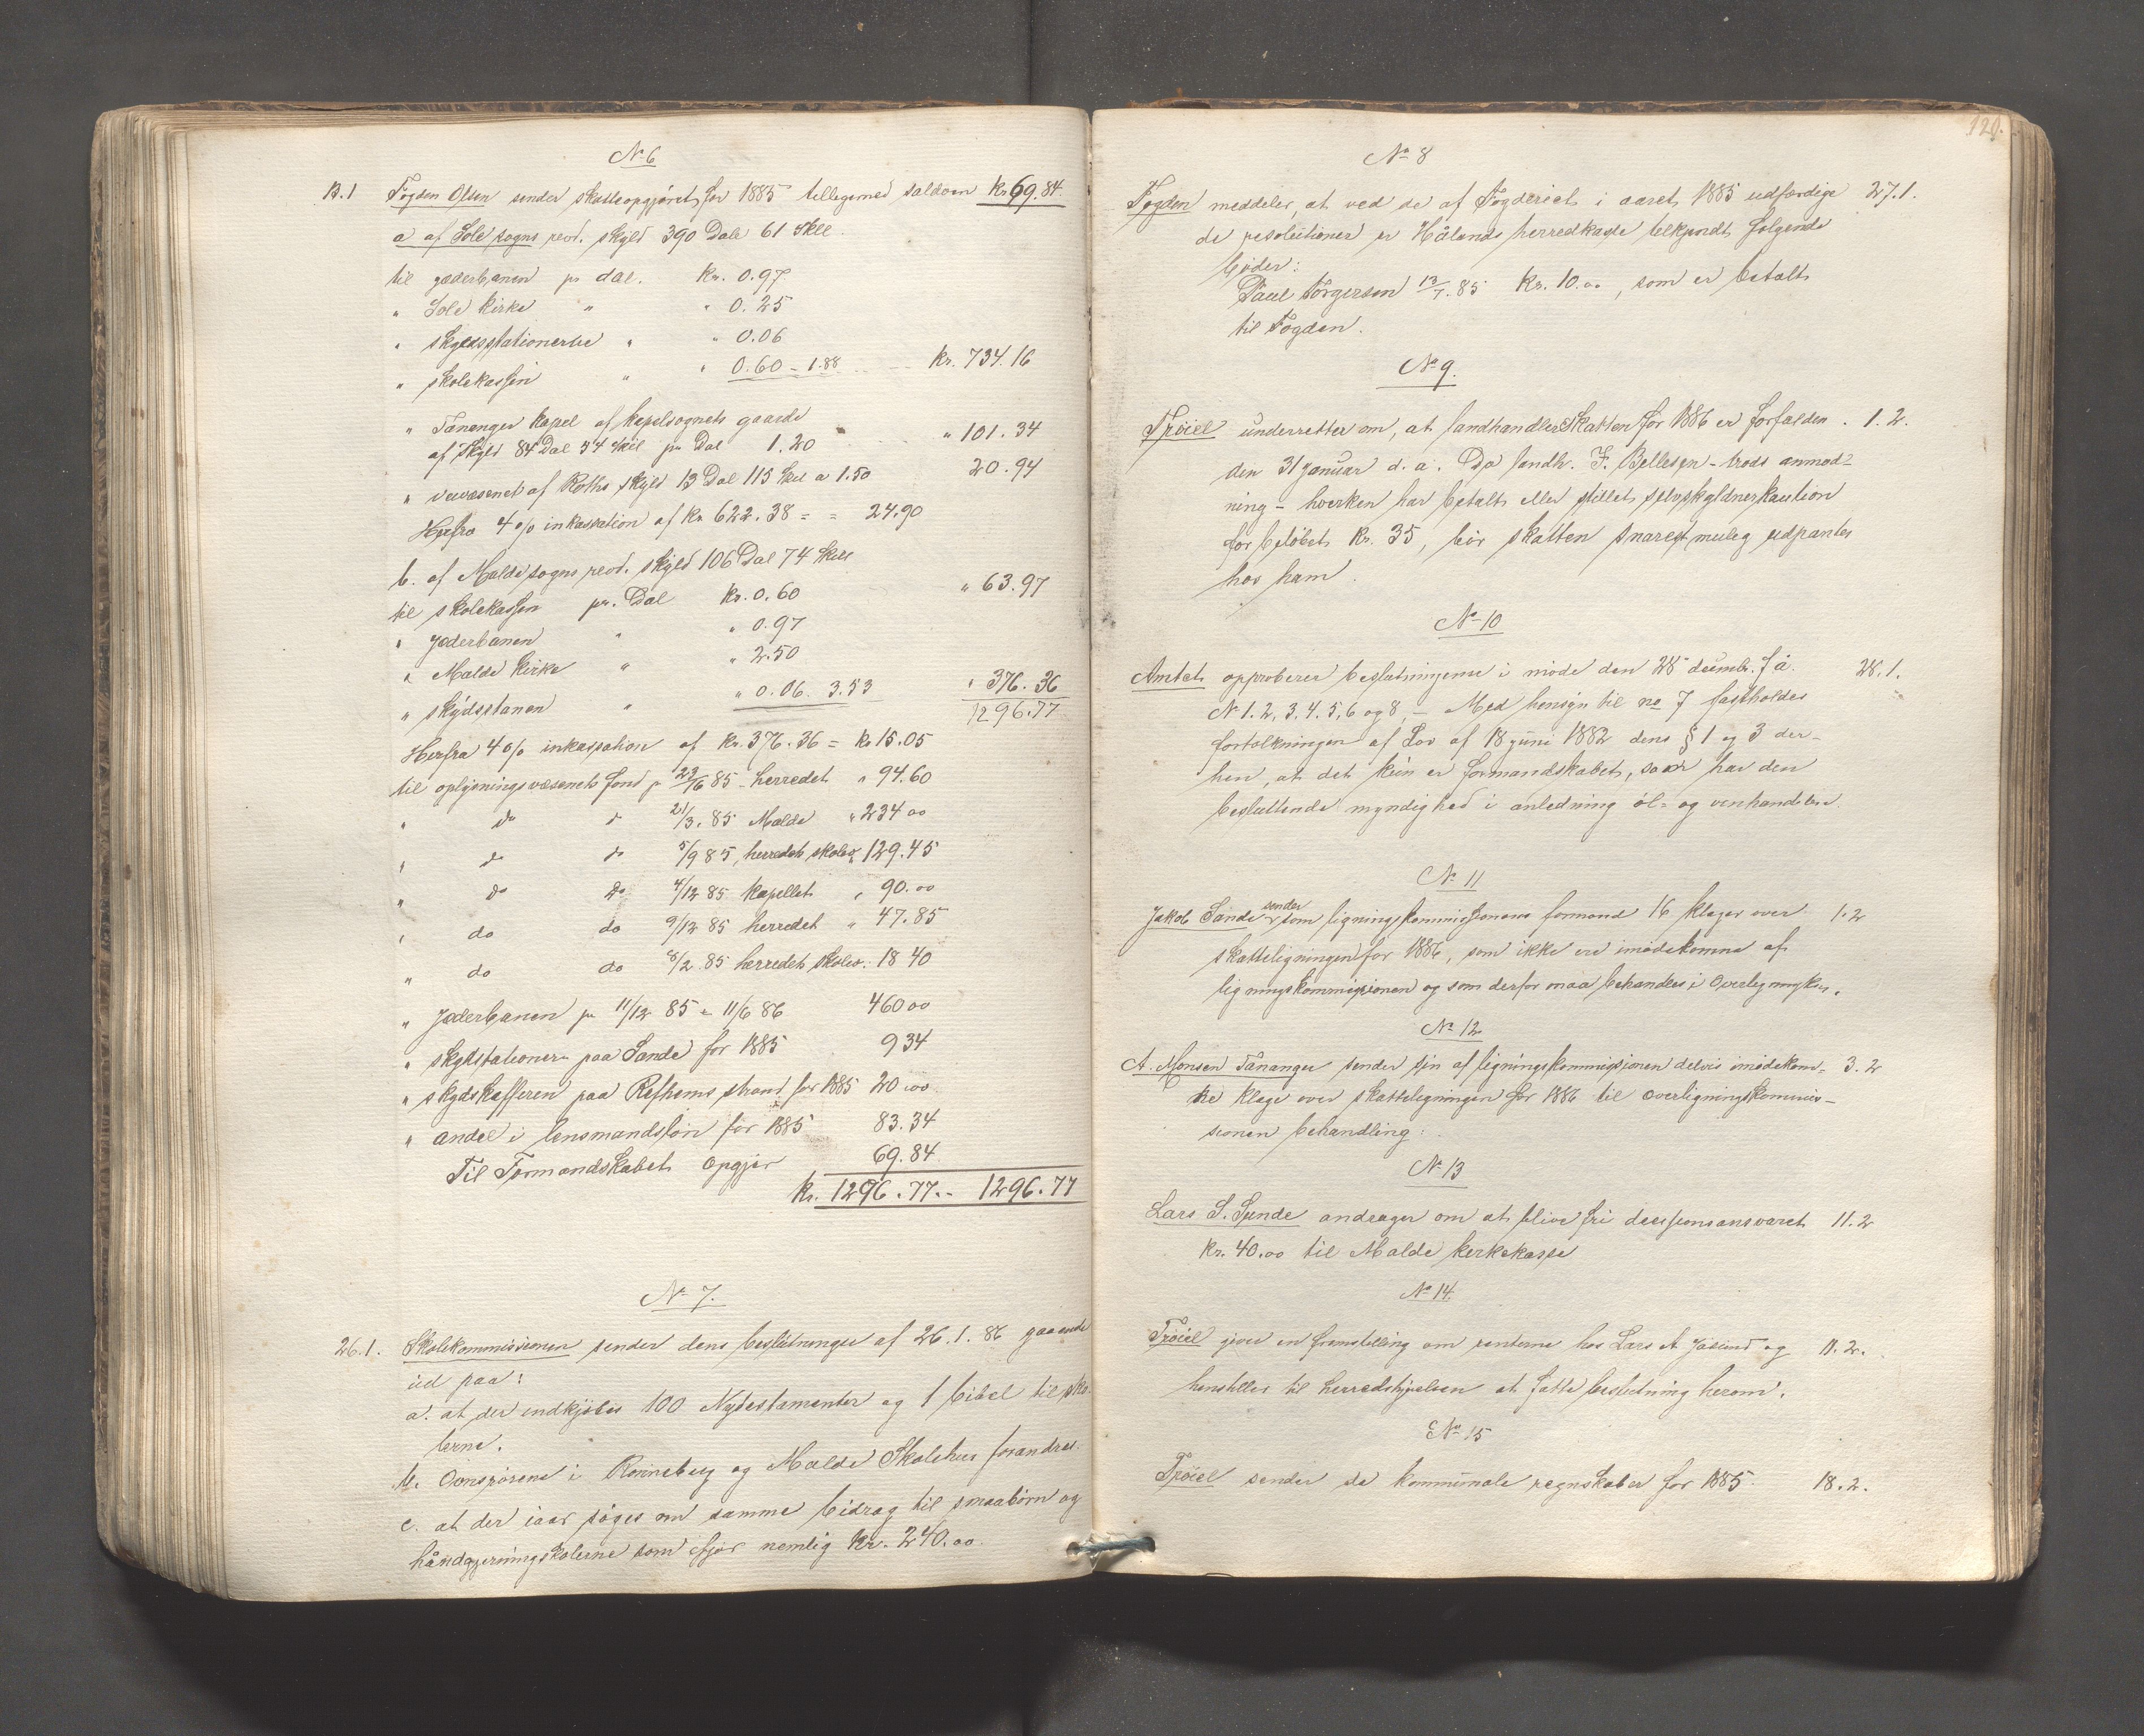 No 6
13.1 Fogden Olsen sender skatteopgjöret for 1885 tilligemed saldoen kr 69.84
a af Sole sogns revd. skyld 390 Dale 61 Skil.
til jæderbanen pr dal. Kr. 0.97
" Sole kirke " " 0.25
" skydsstationerne " " 0.06
" skolekassen " " 0.60 - 1.88 kr. 734.16
" Tananger kapel af kapelsognets gaarde
af skyld 84 Dal 54 skil pr Dal 1.20 " 101.34
" veivæsenet af Roths skyld 13 Dal 115 skil a 1.50 20.94
Herfra 4 % inkassation af Kr 622.38 = = 24.90
b. af Malde sogns revd. skyld 106 Dal 74 Skil
til skolekassen pr. Dal Kr. 0.60 " 63.97
" Jæderbanen " " 0.97
" Malde kirke " " 2.50
" skydsstanen " " 0.06. 3.53 " 376.36
1296.77
Herfra 4 % inkassation af kr. 376.36 = kr 15.05
til oplysningsvæsenets fond pr 22/6 85 - herredet " 94.60
" do do 21/3. 85 Malde " 234 00
" do do 5/9 85, herredets skolev. 129.45
" do do 4/12 85 kapellet " 90.00
" do do 9/12 85 herredet " 47.85
" do do 8/2. 85 herredets skolev. 18 40
" Jæderbanen pr 11/12 85 - 11/6 86 460 00
" skydsstationen paa Sande for 1885 9 34
" skydsskafferen paa Refhems strand for 1885 20.00
" andel i lensmandslön for 1885 83.34
Til Formandskabets opgjör 69.84
kr. 1296.77.- 1296.77
No 7.
26.1. Skolekommissionen sender dens beslutninger af 26.1.86 gaaende
ud paa:
a. at der indkjöbes 100 Nytestamenter og 1 bibel til sko-
lerne.
b. Ovnsrörene i Rönneberg og Malde Skolehus forandres.
c. at der iaar söges om samme bidrag til smaabörn og
håndgjerningskolerne som ifjor nemlig Kr. 240.00
120.
No 8
Fogden meddeler, at ved de af Fogderiet i aaret 1885 udfærdige 27.1.
de resolutioner er Hålands herredkasse tilkjendt følgende
böder:
Paul Torgersen 13/7.85 Kr. 10.00, som er betalt
til Fogden.
No 9.
Tröiel underretter om, at landhandlerskatten for 1886 er forfalden . 1.2.
den 31 januar d.a. Da landh. F. Bellesen - trods anmod-
ning - hverken har betalt eller stillet selvskyldnerkaution
for belöbet Kr. 35, bör skatten snarest mulig udpantes
hos ham.
No 10
Amtet approberer beslutningerne i möde den 28 decembr. f å. 28.1.
No 1.2.3.4.5.6 og 8. - Med hensyn til no 7 fastholdes
fortolkningen af Lov af 18 juni 1882 dens § 1 og 3 der-
hen, at det kun er formandskabet, som har den
besluttende myndighed i anledning öl- og vinhandelen.
No 11
Jakob Sande sender som ligningskommissionens formand 16 klager over 1.2
skatteligningen for 1886, som ikke ere imödekomne af
ligningskommissionen og som derfor maa behandles i Overligningkm.
No 12
A. Monsen Tananger sender sin af ligningskommissionen delvis imödekom- 3.2
ne klage over skatteligningen for 1886 til overligningskommis-
sionen behandling.
No 13
Lars S. Sunde andrager om at blive fri decisionsansvaret 11.2
Kr. 40.00 til Malde kirkekasse
No 14.
Tröiel giver en fremstilling om renterne hos Lars A Jåsund og 11.2.
henstiller til herredstyrelsen at fatte beslutning herom.
No 15
Tröiel sender de kommunale regnskaber for 1885. 18.2.